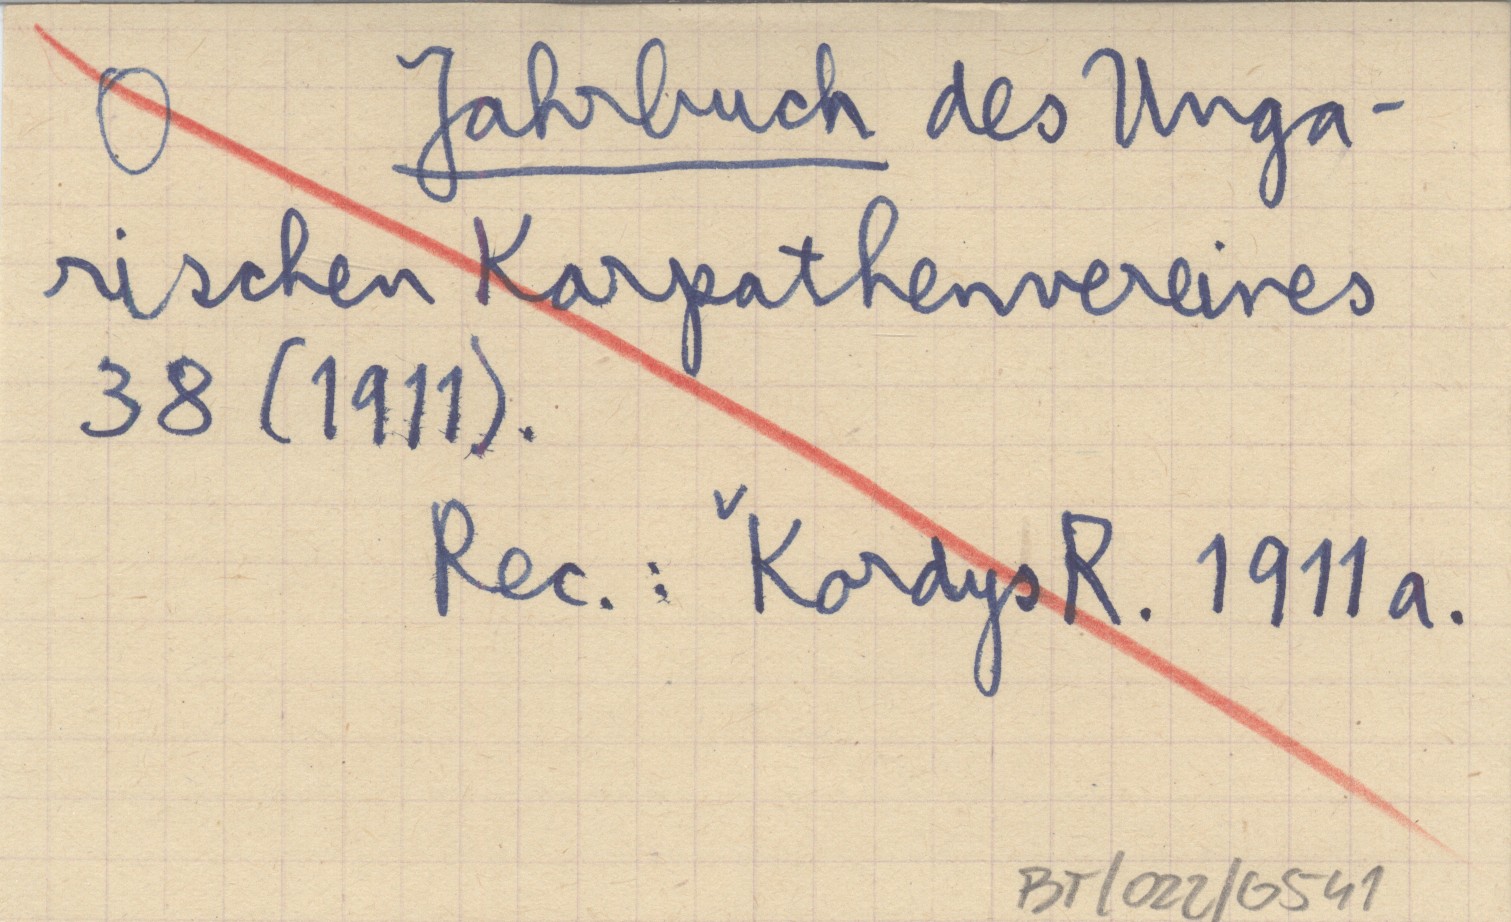 O Jahrbuch des Unga-
rischen Karpathenvereines
38 (1911).
Rec.: ˇKordys R. 1911 a.
BT/022/G541